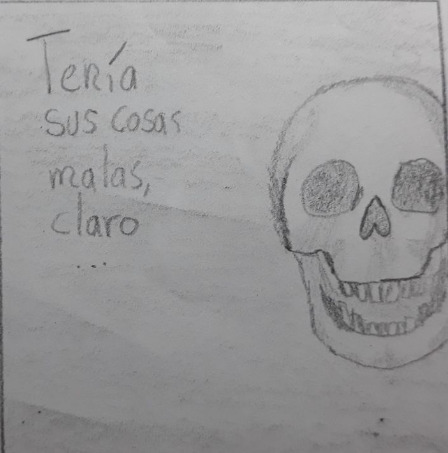 Tenía
sus cosas
malas,
claro
...